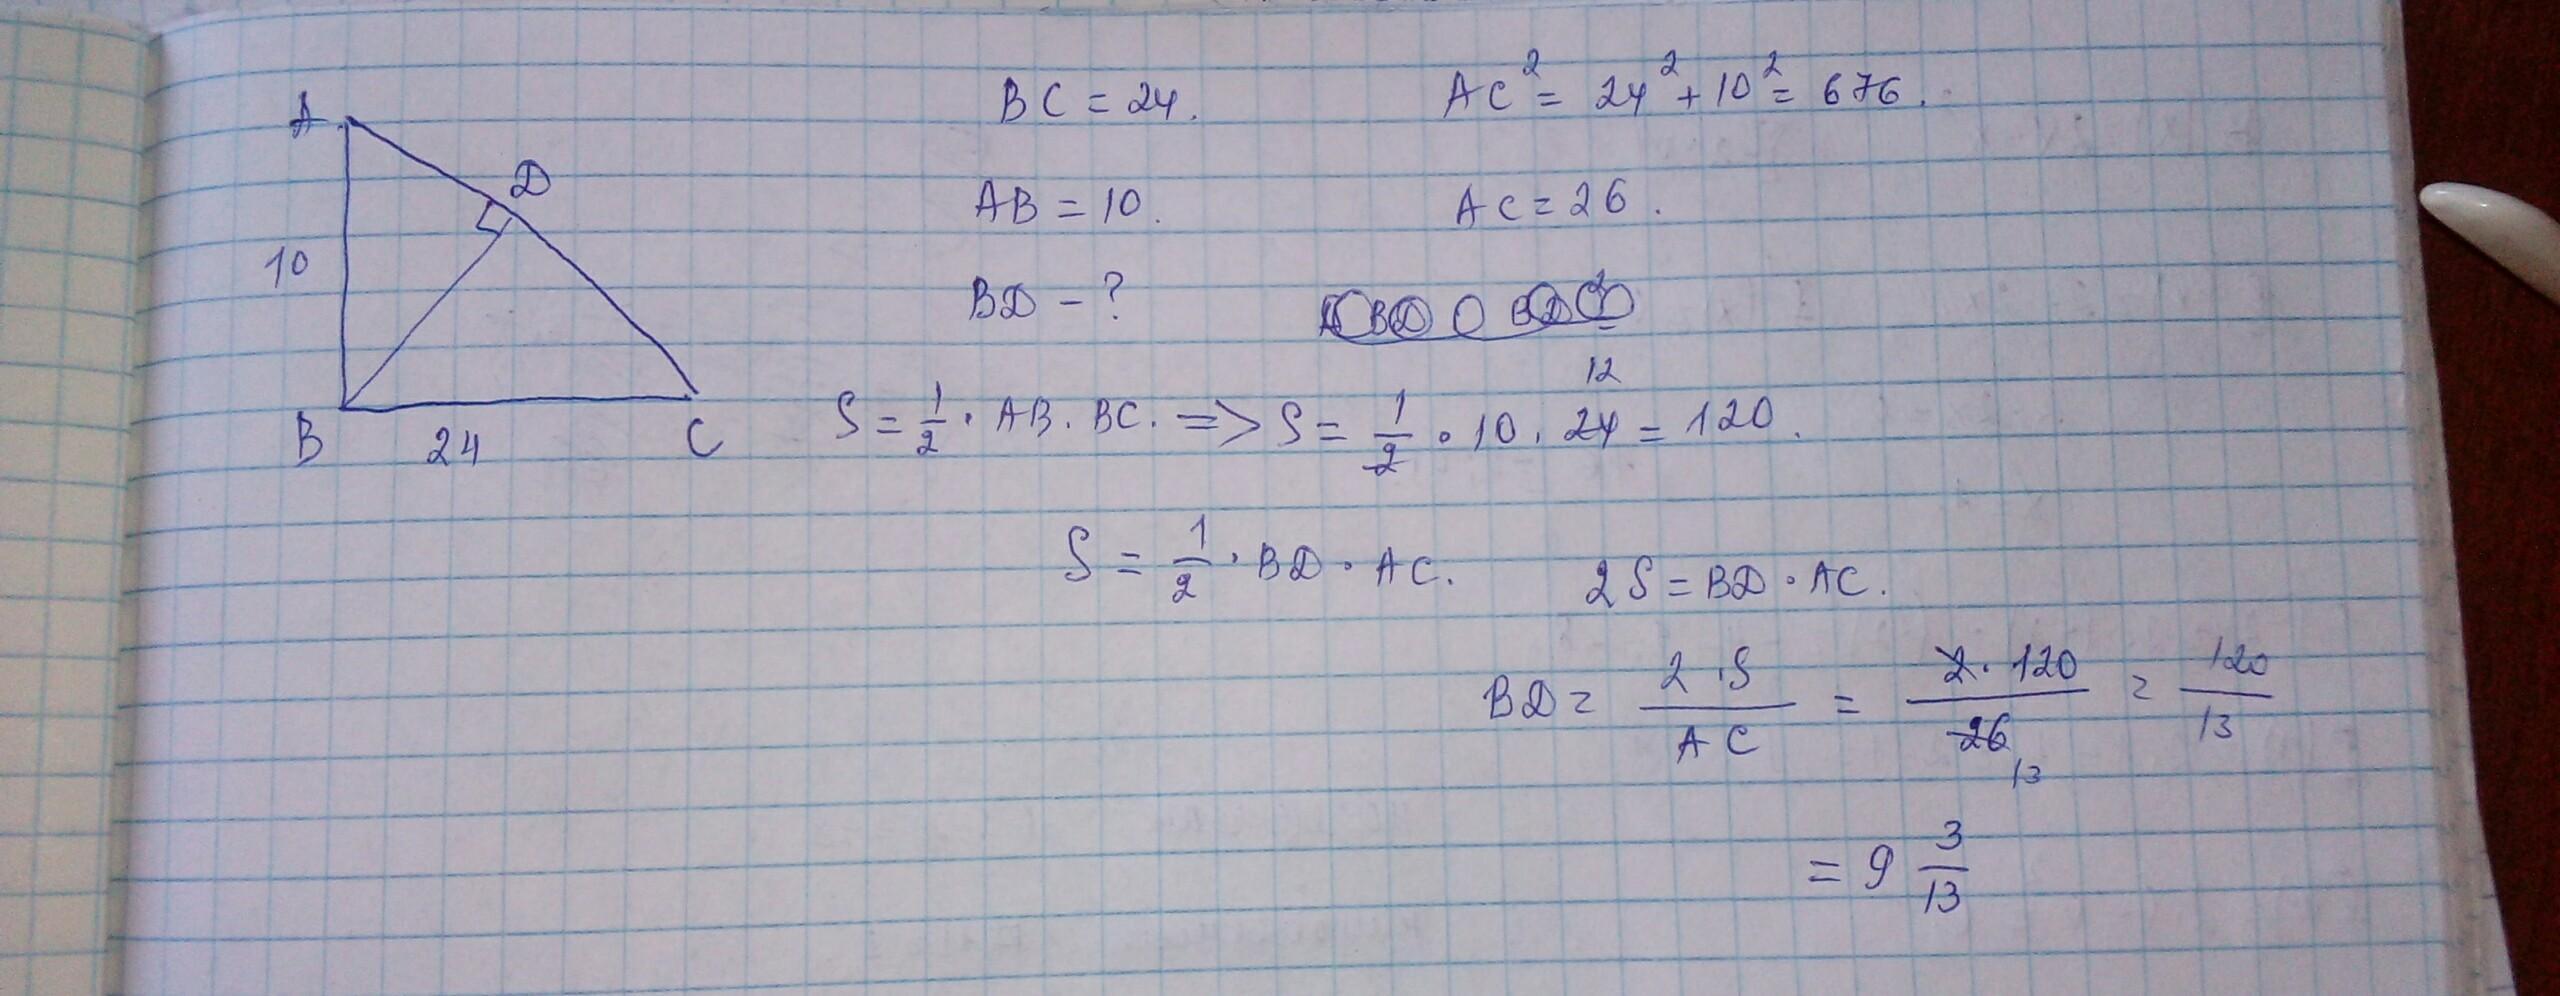 A
D
10
B
24
C
BC = 24.
AC² = 24² + 10² = 676.
AB = 10.
AC = 26.
BD - ?
S = 1/2 · AB · BC. => S = 1/2 · 10 · 24 = 120.
12
S = 1/2 · BD · AC.
2S = BD · AC.
BD = 2·S/AC = 2·120/26 = 120/13
13
= 9 3/13